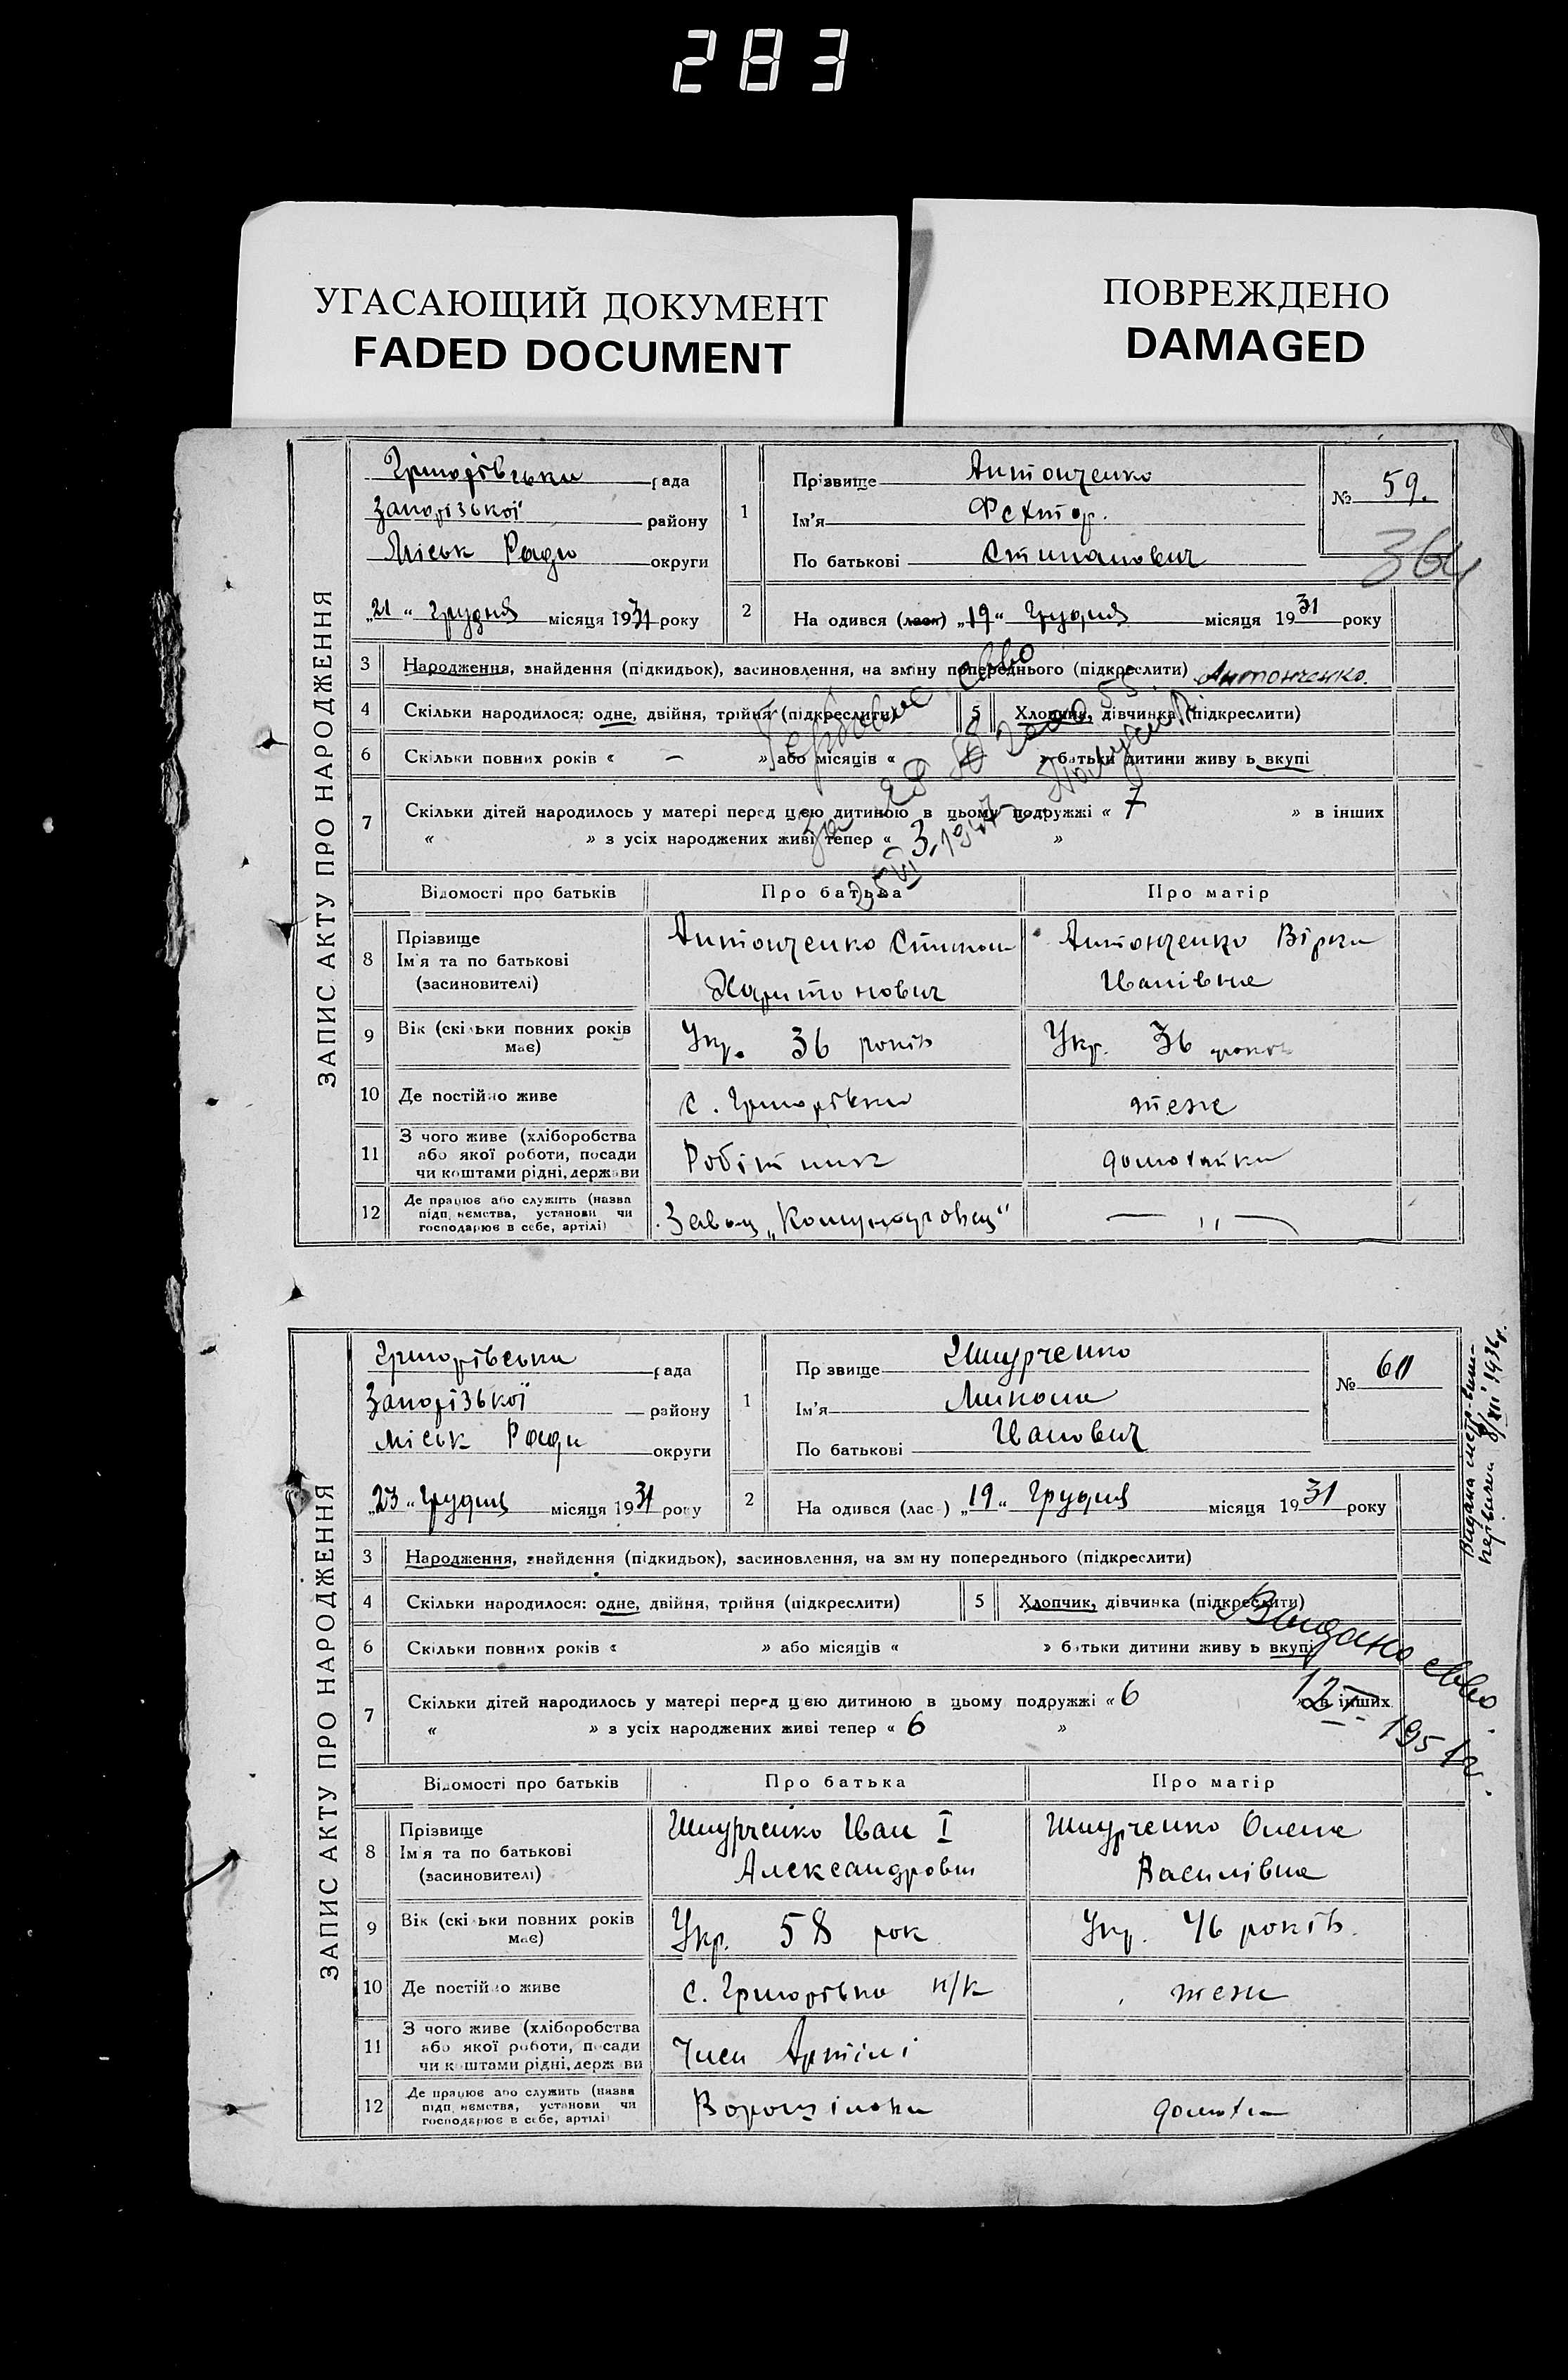 283
УГАСАЮЩИЙ ДОКУМЕНТ
FADED DOCUMENT
ПОВРЕЖДЕНО
DAMAGED
ЗАПИС АКТУ ПРО НАРОДЖЕННЯ
Григорівська рада
Запорізької району
Міськ Ради округи
„21“ Грудня місяця 1931 року
1
Прізвище Антонченко
Ім'я
По батькові Степанович
№ 59.
364
2
На одився (лася) „19“ Грудня місяця 1931 року
3 Народження, знайдення (підкидьок), засиновлення, на зміну попереднього (підкреслити) Антонченко.
4 Скільки народилося: одне, двійня, трійня (підкреслити)
5 Хлопчик, дівчинка (підкреслити)
6 Скільки повних років « — » або місяців « » батьки дитини живу ь вкупі
7 Скільки дітей народилось у матері перед цією дитиною в цьому подружжі « 7 » в інших
« » з усіх народжених живі тепер « 3 »
Відомості про батьків Про батька Про матір
8 Прізвище
Ім'я та по батькові
(засиновителі)
Антонченко Степан
Харитонович
Антонченко Вірка
Іванівна
9 Вік (скільки повних років має)
Укр. 36 років
Укр. 36 років
10 Де постійно живе
с. Григорівка
теж
11 З чого живе (хліборобства
або якої роботи, посади
чи коштами рідні, держави
Робітник
домохазяйка
12 Де працює або служить (назва
підп ємства, установи чи
господарює в себе, артілі)
Завод „Комунар
— " —
ЗАПИС АКТУ ПРО НАРОДЖЕННЯ
Григорівська рада
Запорізької району
Міськ Ради округи
„23“ Грудня місяця 1931 року
1
Пр звище Шмурченко
Ім'я Микола
По батькові Іванович
№ 60
2
На одився (лас ) „19“ Грудня місяця 1931 року
3 Народження, знайдення (підкидьок), засиновлення, на зм ну попереднього (підкреслити)
4 Скільки народилося: одне, двійня, трійня (підкреслити)
5 Хлопчик, дівчинка (підкреслити)
6 Скільки повних років « » або місяців « » батьки дитини живу ь вкупі
Видано св-во
12 195
7 Скільки дітей народилось у матері перед цією дитиною в цьому подружжі « 6 » в інших
« » з усіх народжених живі тепер « 6 »
Відомості про батьків Про батька Про матір
8 Прізвище
Ім'я та по батькові
(засиновителі)
Шмурченко Іван I
Александрович
Шмурченко Олена
Василівна
9 Вік (скі ьки повних років має)
Укр. 58 рок
Укр. 46 років.
10 Де постій о живе
с. Григорівка н/к
теж
11 З чого живе (хліборобства
або якої роботи, посади
чи коштами рідні, держ ви
Член Артілі
12 Де працює або служить (назва
підп ємства, установи чи
господарює в себе, артілі)
Ворошилова